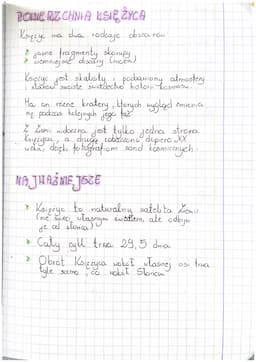 POWIERZCHNIA KSIĘŻYCA
Księżyc ma dwa rodzaje obszarów:
jasne fragmenty skorupy
ciemniejsze obszary (morza)
Księżyc jest skalisty i pozbawiony atmosfery
i stanowi swoiste świadectwo historii kosmosu.
Ma on różne kratery, których wygląd zmienia
się podczas kolejnych jego faz
Z Ziemi widoczna jest tylko jedna strona
Księżyca, a drugą zobaczono dopiero XX
wieku, dzięki fotografiom sond kosmicznych.
NAJWAŻNIEJSZE
Księżyc to naturalny satelita Ziemi
(nie świeci własnym światłem, ale odbija
je od słońca)
Cały cykl trwa 29,5 dnia
Obrót Księżyca wokół własnej osi trwa
tyle samo, co wokół Słońca